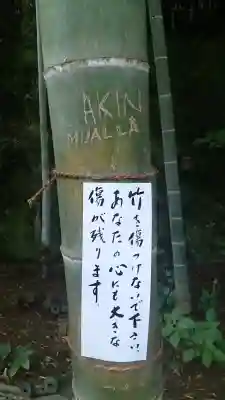 AKIN
MIJALLA
竹を傷つけないで下さい、
あなたの心にも大きな
傷が残ります